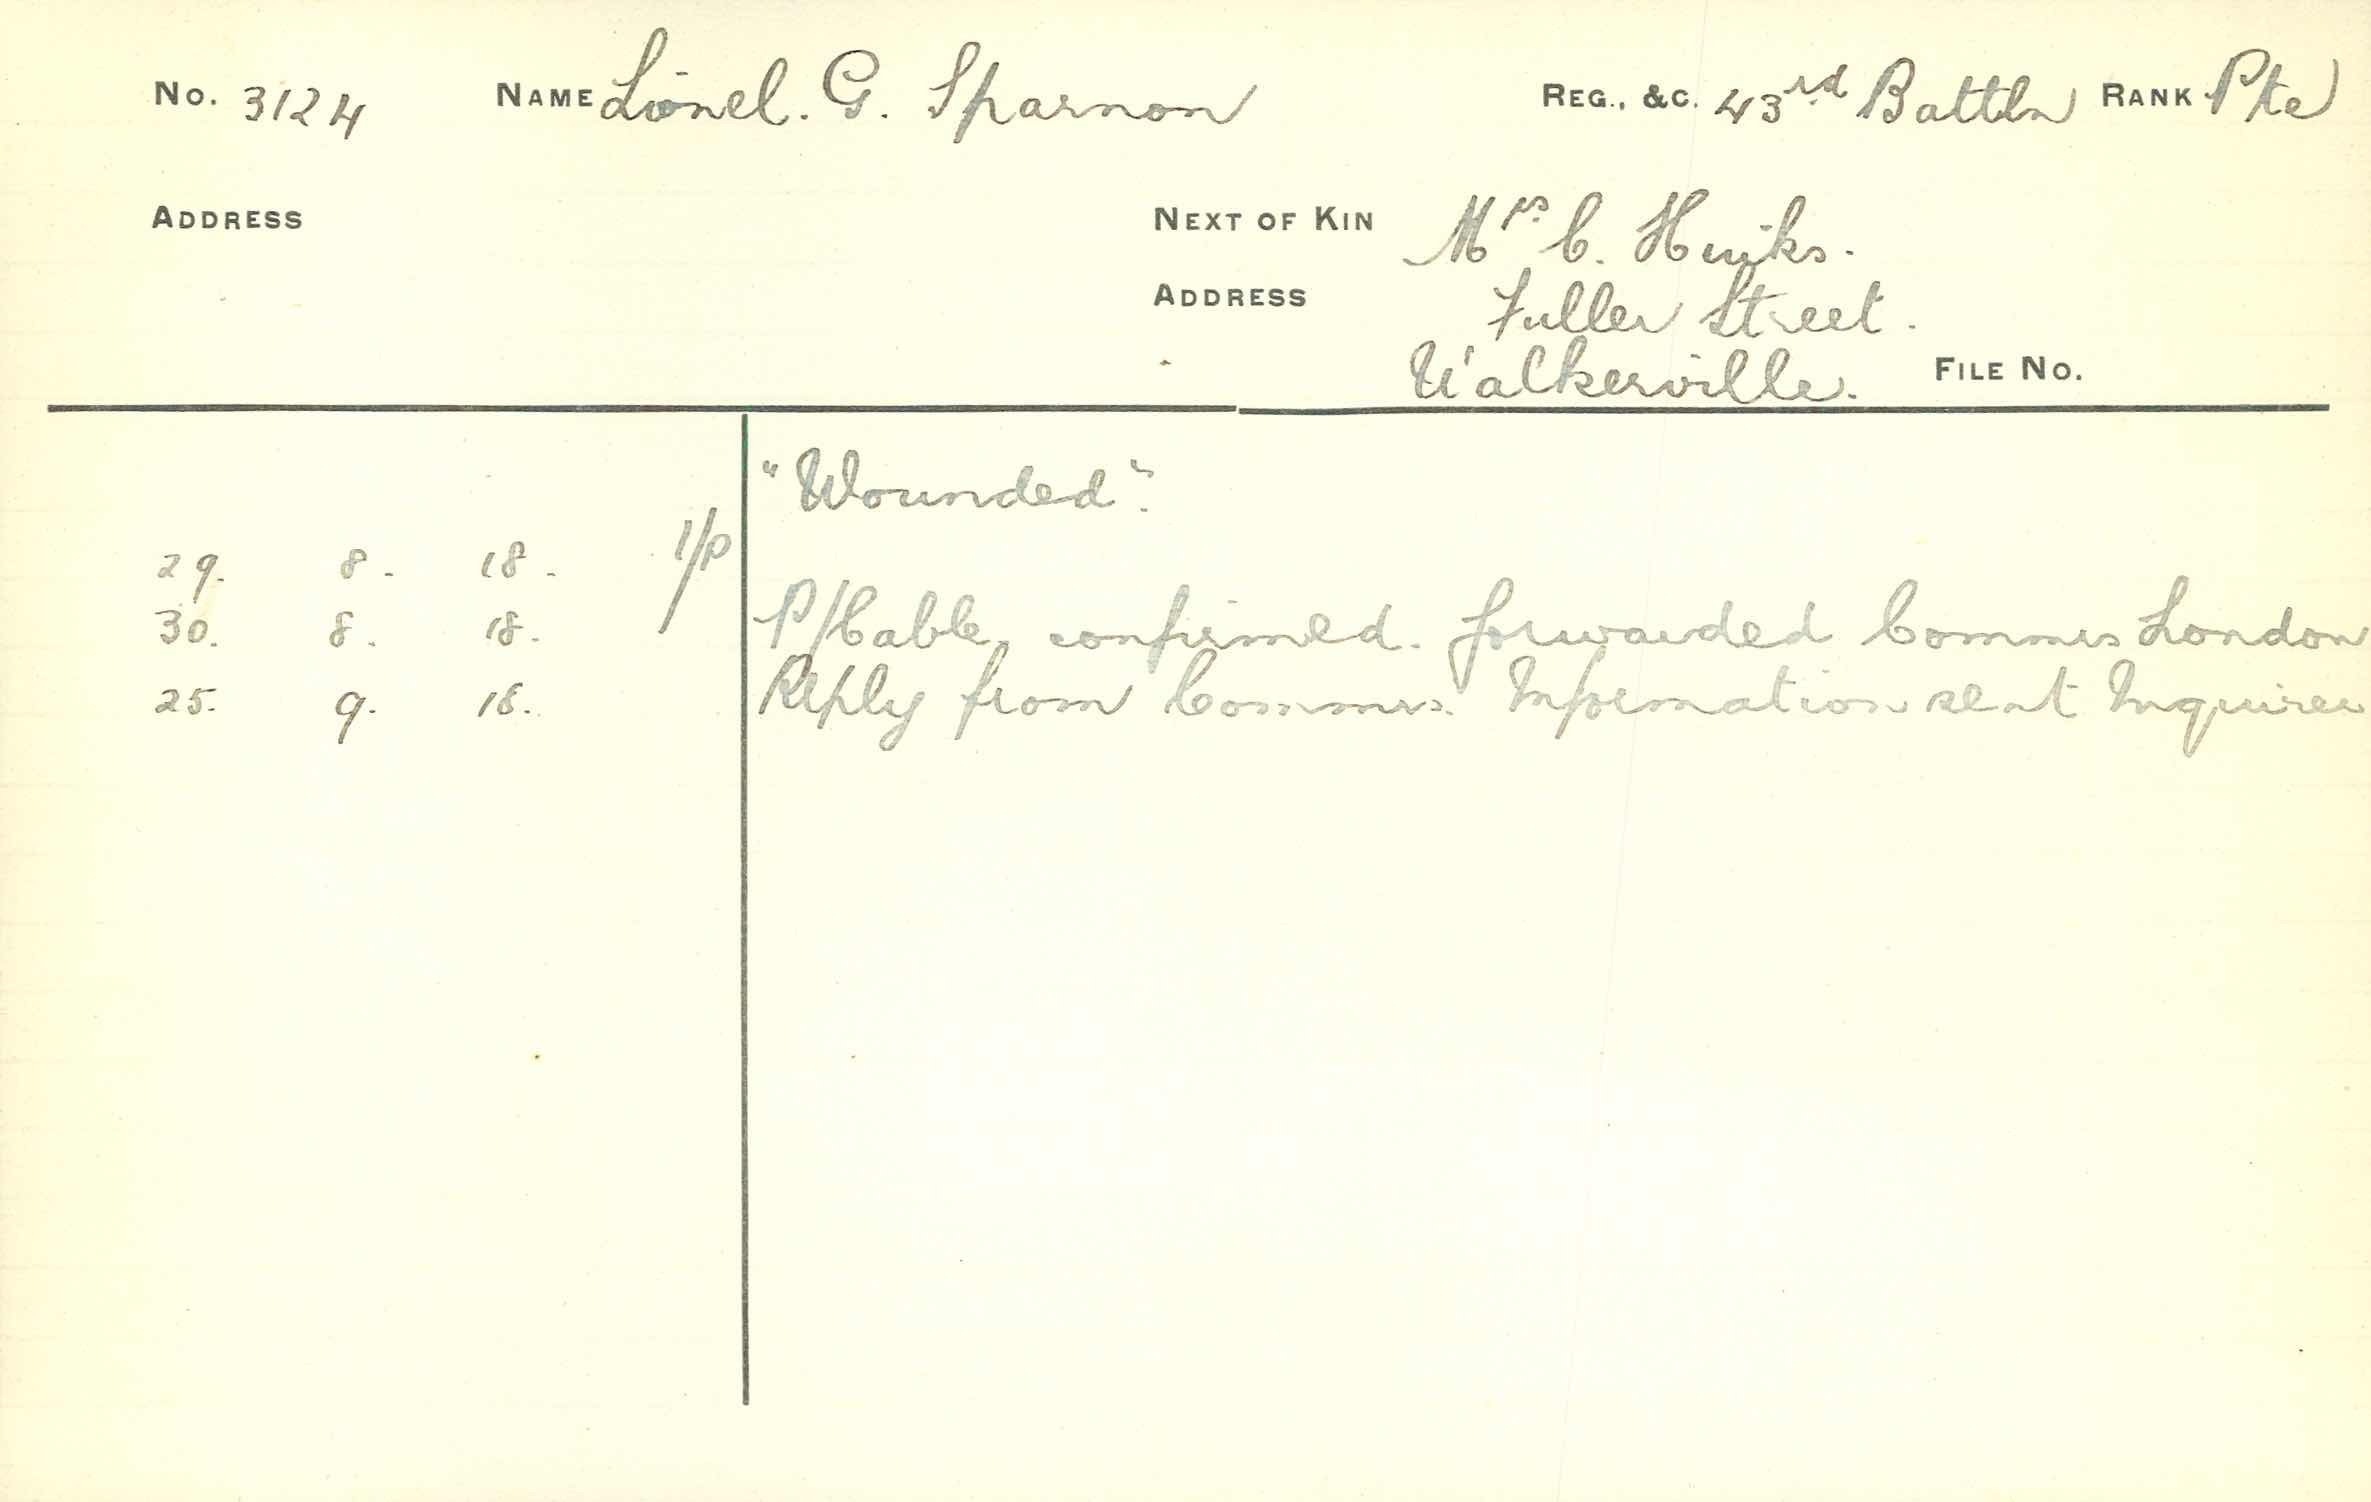 No. 3124 NAME Lionel. G. Sparnon REG., &C. 43rd Battln RANK Pte
ADDRESS NEXT OF KIN Mrs C.
ADDRESS Fuller Street.
Walkerville. FILE No.
"Wounded".
29. 8. 18. 1/P
30. 8. 18. P/Cable, confirmed. forwarded Commrs London
25. 9. 18. Reply from Commrs. Information sent Inquirer